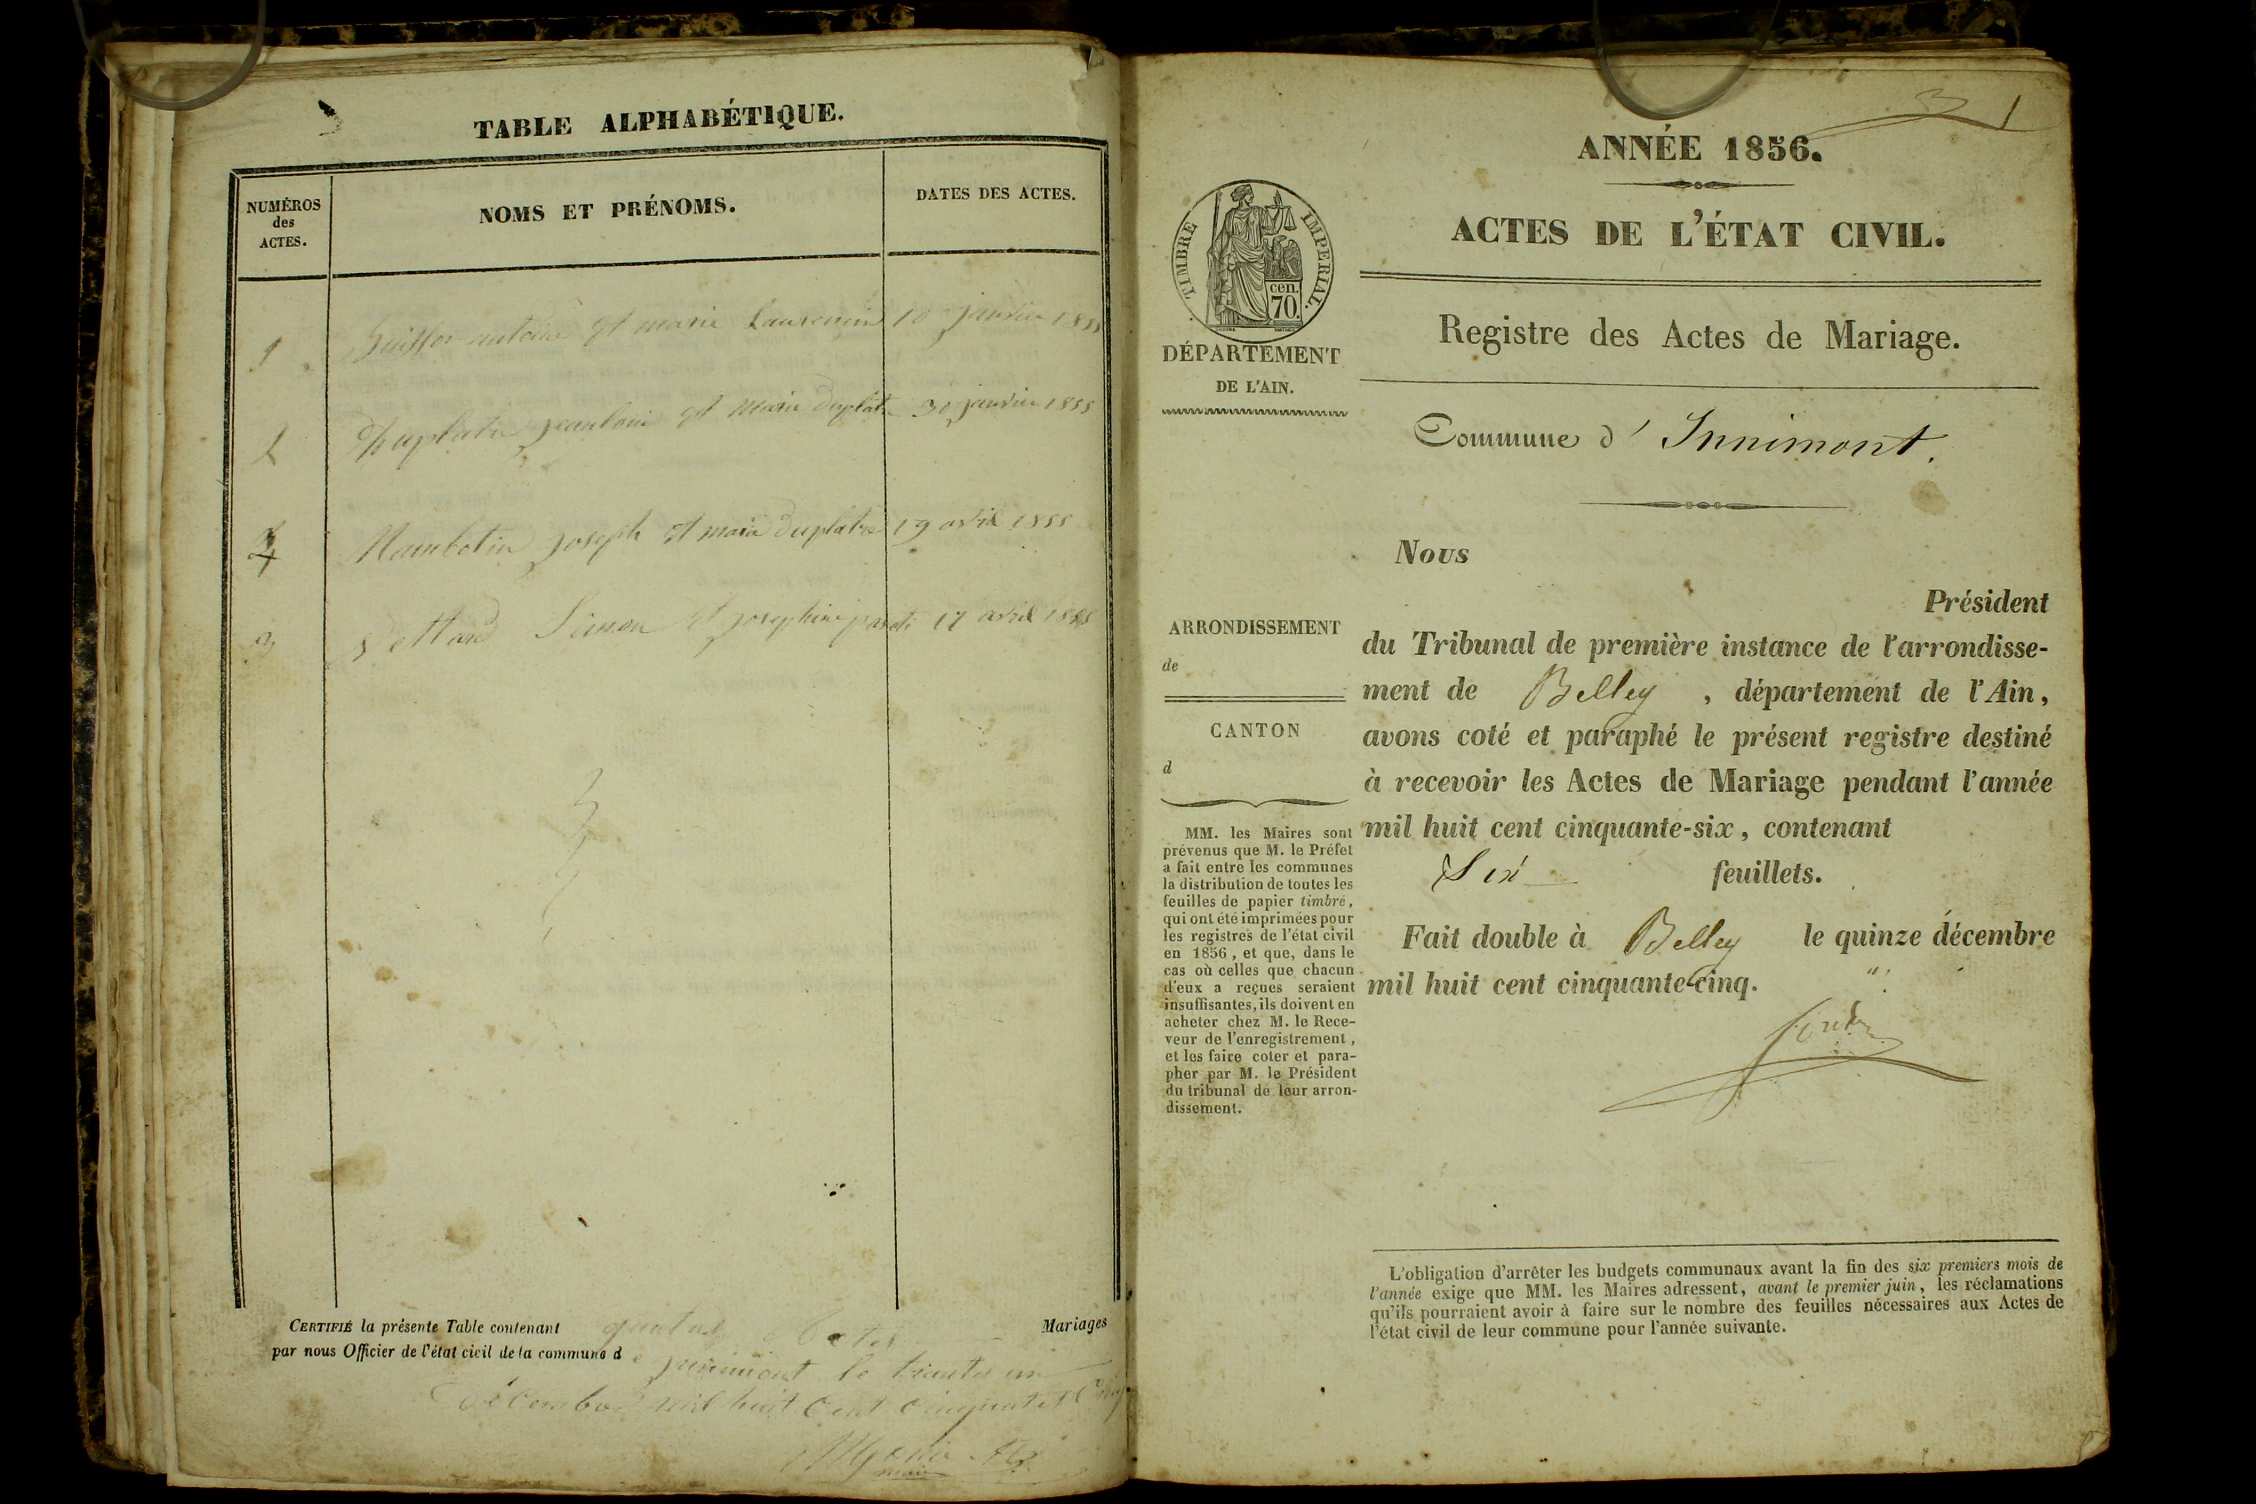 TABLE ALPHABÉTIQUE.
NUMÉROS
des
ACTES.
NOMS ET PRÉNOMS.
DATES DES ACTES.
1 antoine et marie 10 janvier 1855
2 et marie duplatre 30 janvier 1855
4 joseph et marie duplatre 19 avril 1855
3 Simon et josephine 17 avril 1855
CERTIFIÉ la présente Table contenant quatre actes Mariages
par nous Officier de l'état civil de la commune d le trente un
décembre mil huit cent cinquante cinq
maire
1
ANNÉE 1856.
ACTES DE L'ÉTAT CIVIL.
Registre des Actes de Mariage.
TIMBRE IMPERIAL.
cen.
70.
DÉPARTEMENT
DE L'AIN.
Commune d'Innimont.
ARRONDISSEMENT
de
CANTON
d
MM. les Maires sont
prévenus que M. le Préfet
a fait entre les communes
la distribution de toutes les
feuilles de papier timbré,
qui ont été imprimées pour
les registres de l'état civil
en 1856, et que, dans le
cas où celles que chacun
d'eux a reçues seraient
insuffisantes, ils doivent en
acheter chez M. le Rece-
veur de l'enregistrement,
et les faire coter et para-
pher par M. le Président
du tribunal de leur arron-
dissement.
Nous
Président
du Tribunal de première instance de l'arrondisse-
ment de Belley, département de l'Ain,
avons coté et paraphé le présent registre destiné
à recevoir les Actes de Mariage pendant l'année
mil huit cent cinquante-six, contenant
Six feuillets.
Fait double à Belley le quinze décembre
mil huit cent cinquante-cinq.
L'obligation d'arrêter les budgets communaux avant la fin des six premiers mois de
l'année exige que MM. les Maires adressent, avant le premier juin, les réclamations
qu'ils pourraient avoir à faire sur le nombre des feuilles nécessaires aux Actes de
l'état civil de leur commune pour l'année suivante.